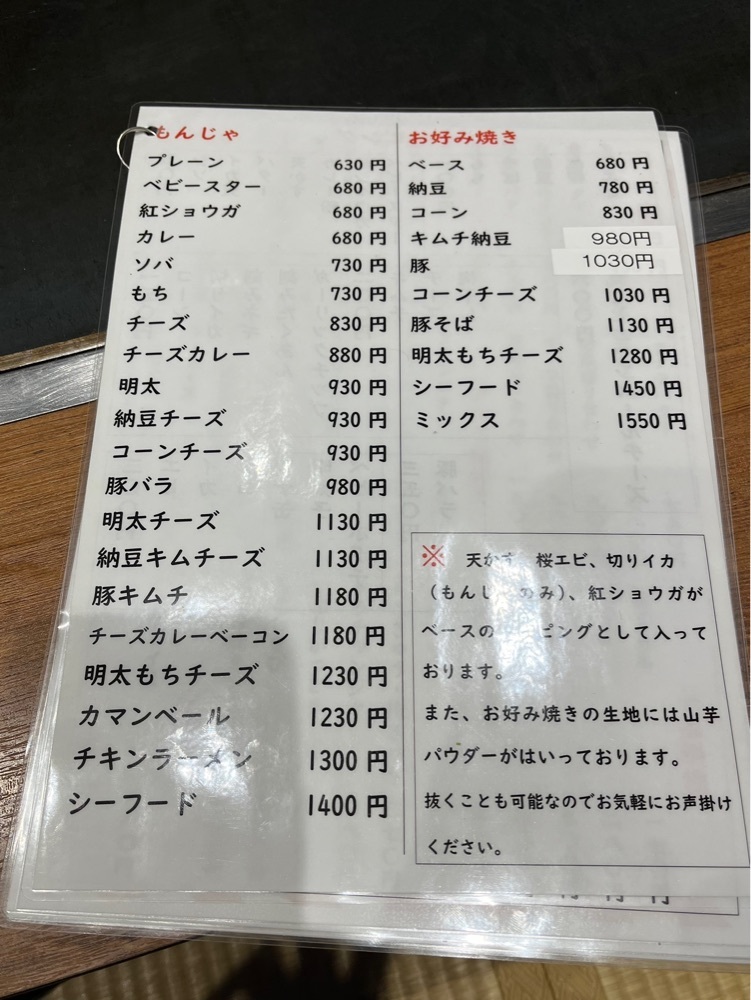 もんじゃ
プレーン 630円
ベビースター 680円
紅ショウガ 680円
カレー 680円
ソバ 730円
もち 730円
チーズ 830円
チーズカレー 880円
明太 930円
納豆チーズ 930円
コーンチーズ 930円
豚バラ 980円
明太チーズ 1130円
納豆キムチーズ 1130円
豚キムチ 1180円
チーズカレーベーコン 1180円
明太もちチーズ 1230円
カマンベール 1230円
チキンラーメン 1300円
シーフード 1400円
お好み焼き
ベース 680円
納豆 780円
コーン 830円
キムチ納豆 980円
豚 1030円
コーンチーズ 1030円
豚そば 1130円
明太もちチーズ 1280円
シーフード 1450円
ミックス 1550円
※ 天かす、桜エビ、切りイカ
(もんじゃのみ)、紅ショウガが
ベースのトッピングとして入って
おります。
また、お好み焼きの生地には山芋
パウダーがはいっております。
抜くことも可能なのでお気軽にお声掛け
ください。